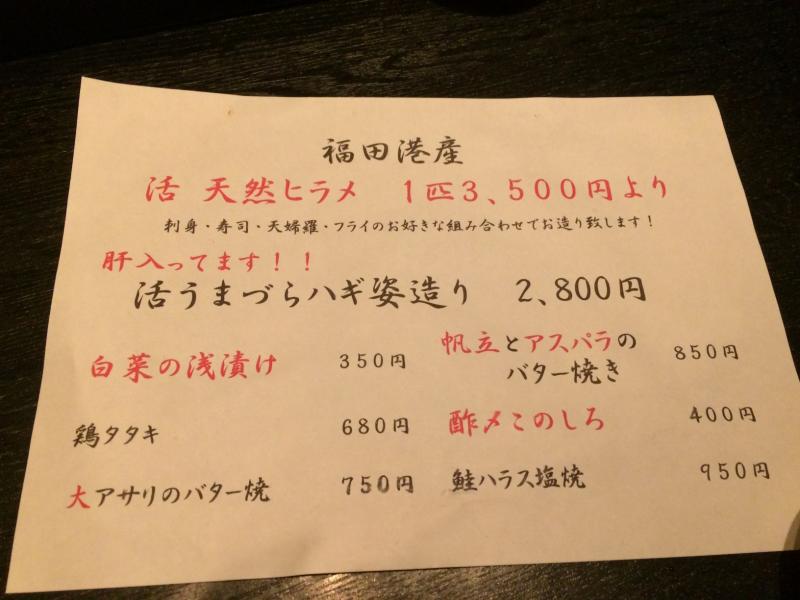 福田港産
活 天然ヒラメ 1匹3、500円より
刺身・寿司・天婦羅・フライのお好きな組み合わせでお造り致します！
肝入ってます！！
活うまづらハギ姿造り 2、800円
白菜の浅漬け 350円
鶏タタキ 680円
大アサリのバター焼 750円
帆立とアスパラの
バター焼き 850円
酢〆このしろ 400円
鮭ハラス塩焼 950円